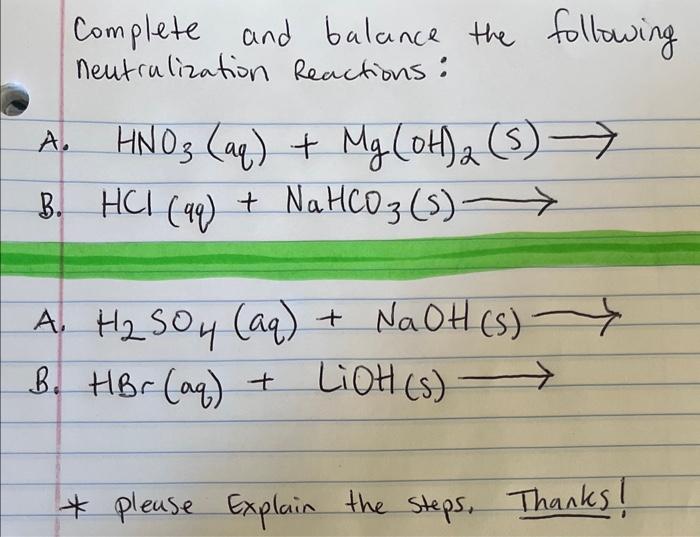 Complete and balance the following
neutralization Reactions:
A. HNO3 (aq) + Mg(OH)2 (s) →
B. HCl (aq) + NaHCO3(s) →
A. H2SO4 (aq) + NaOH(s) →
B. HBr (aq) + LiOH(s) →
* please Explain the steps. Thanks!